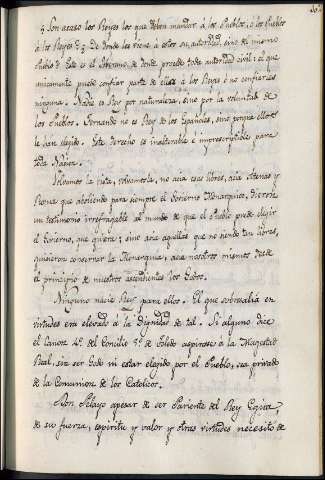 ¿Son acaso los Reyes los que deben mandar á los Pueblos, ó los Pueblos
á los Reyes? ¿De donde les viene a estos su autoridad, sino del mismo
Pueblo? Este es el Soberano, de donde procede toda autoridad civil: él que
unicamente puede confiar parte de ella á los Reyes ó no confiarles
ninguna. Nadie es Rey por naturaleza, sino por la voluntad de
los Pueblos. Fernando no es Rey de los Españoles, sino porque ellos
le han elegido. Este derecho es inalterable é imprescriptible para
toda Nacion.
Volvamos la vista, volvamosla, no acia esas libres, acia Atenas y
Roma que aboliendo para siempre el Govierno Monarquico, dieron
un testimonio irrefragable al mundo de que el Pueblo puede elegir
el Govierno, que quiera; sino acia aquellas que no siendo tan libres,
quisieron conservar la Monarquia, acia nosotros mismos desde
el principio de nuestros ascendientes los Godos.
Ninguno nacia Rey para ellos. El que sobresalia en
virtudes era elevado á la Dignidad de tal. Si alguno dice
el Canon 4º del Concilio 5º de Toledo aspirase á la Magestad
Real, sin ser Godo ni estar elegido por el Pueblo, sea privado
de la Comunion de los Catolicos.
Don Pelayo apesar de ser Pariente del Rey Egica,
de su fuerza, espiritu y valor y otras virtudes necesitó de